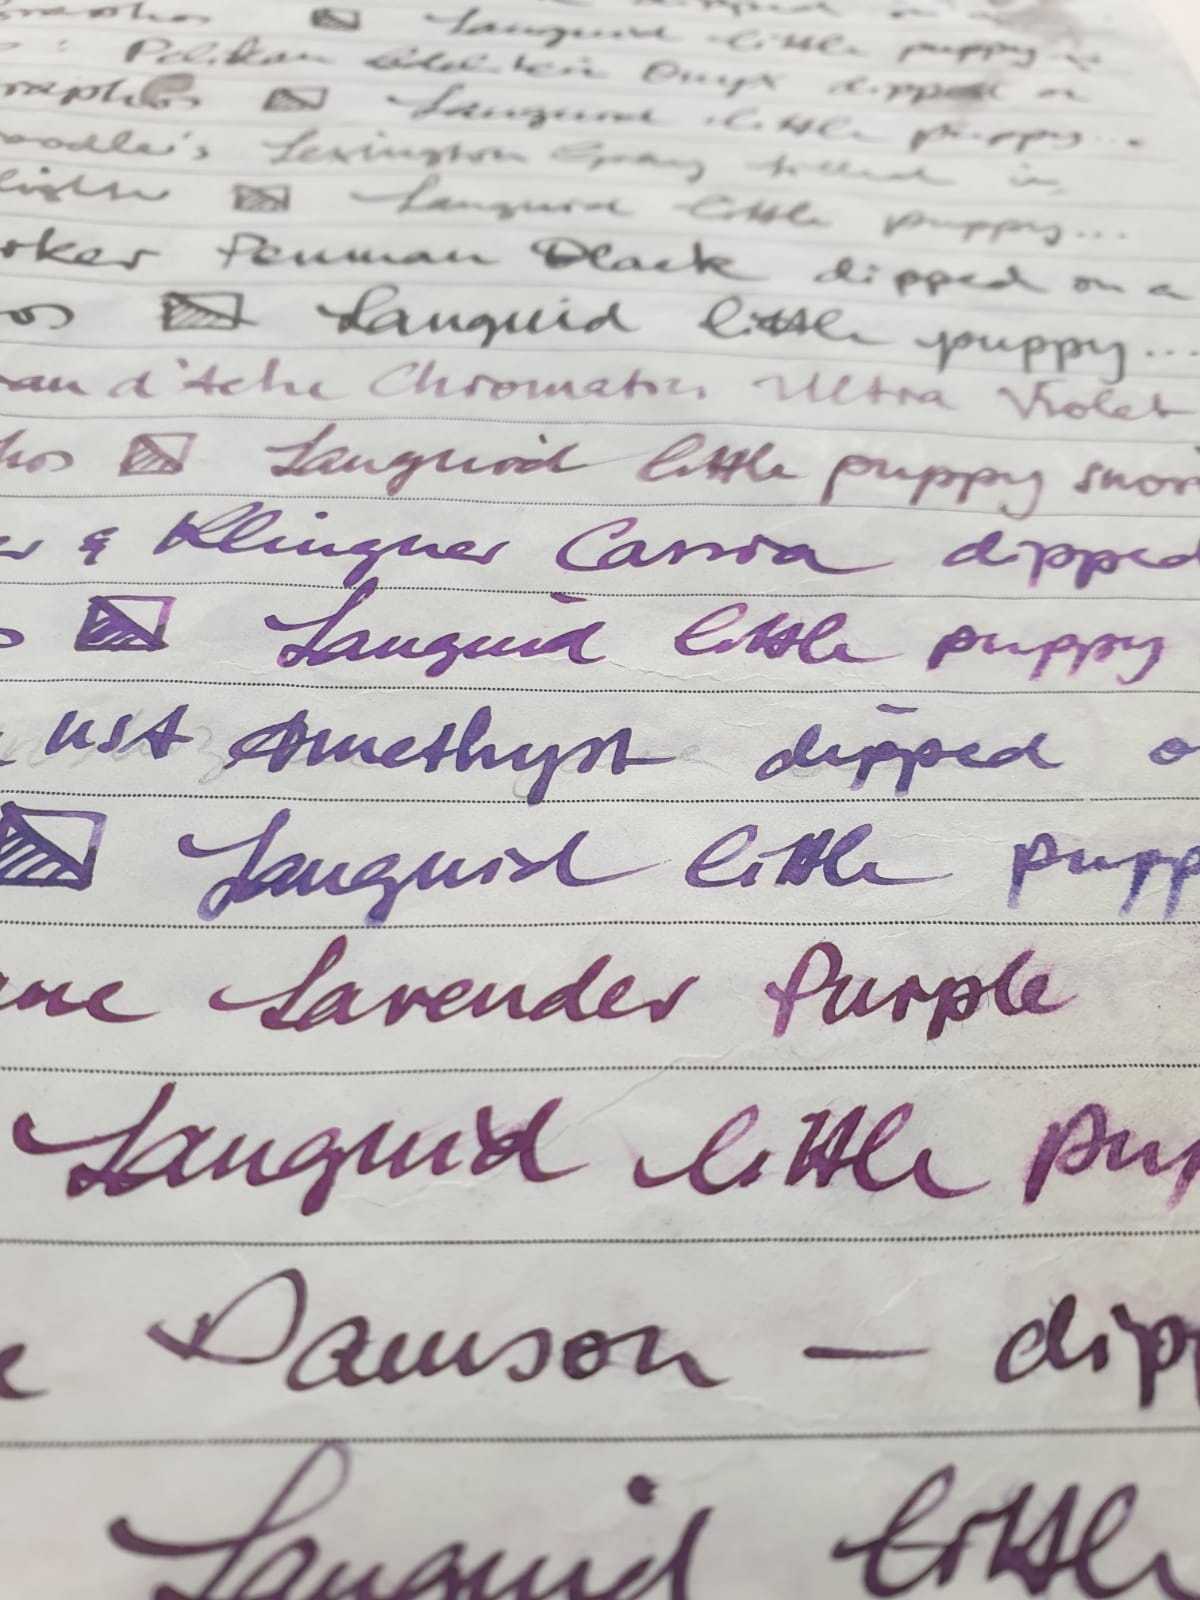 Languid little puppy
Pelikan Edelstein Onyx dipped on
raphos Languid little puppy...
oodler's Lexington Gray filled in
Languid little puppy...
rker Penman Black dipped on a
os Languid little puppy...
ran d'Ache Chromatics Ultra Violet
hos Languid little puppy snori
er & Klingner Cassia dipped
Languid little puppy
ust Amethyst dipped o
Languid little pupp
Lavender Purple
Languid little pup
Damson — dipp
Languid little